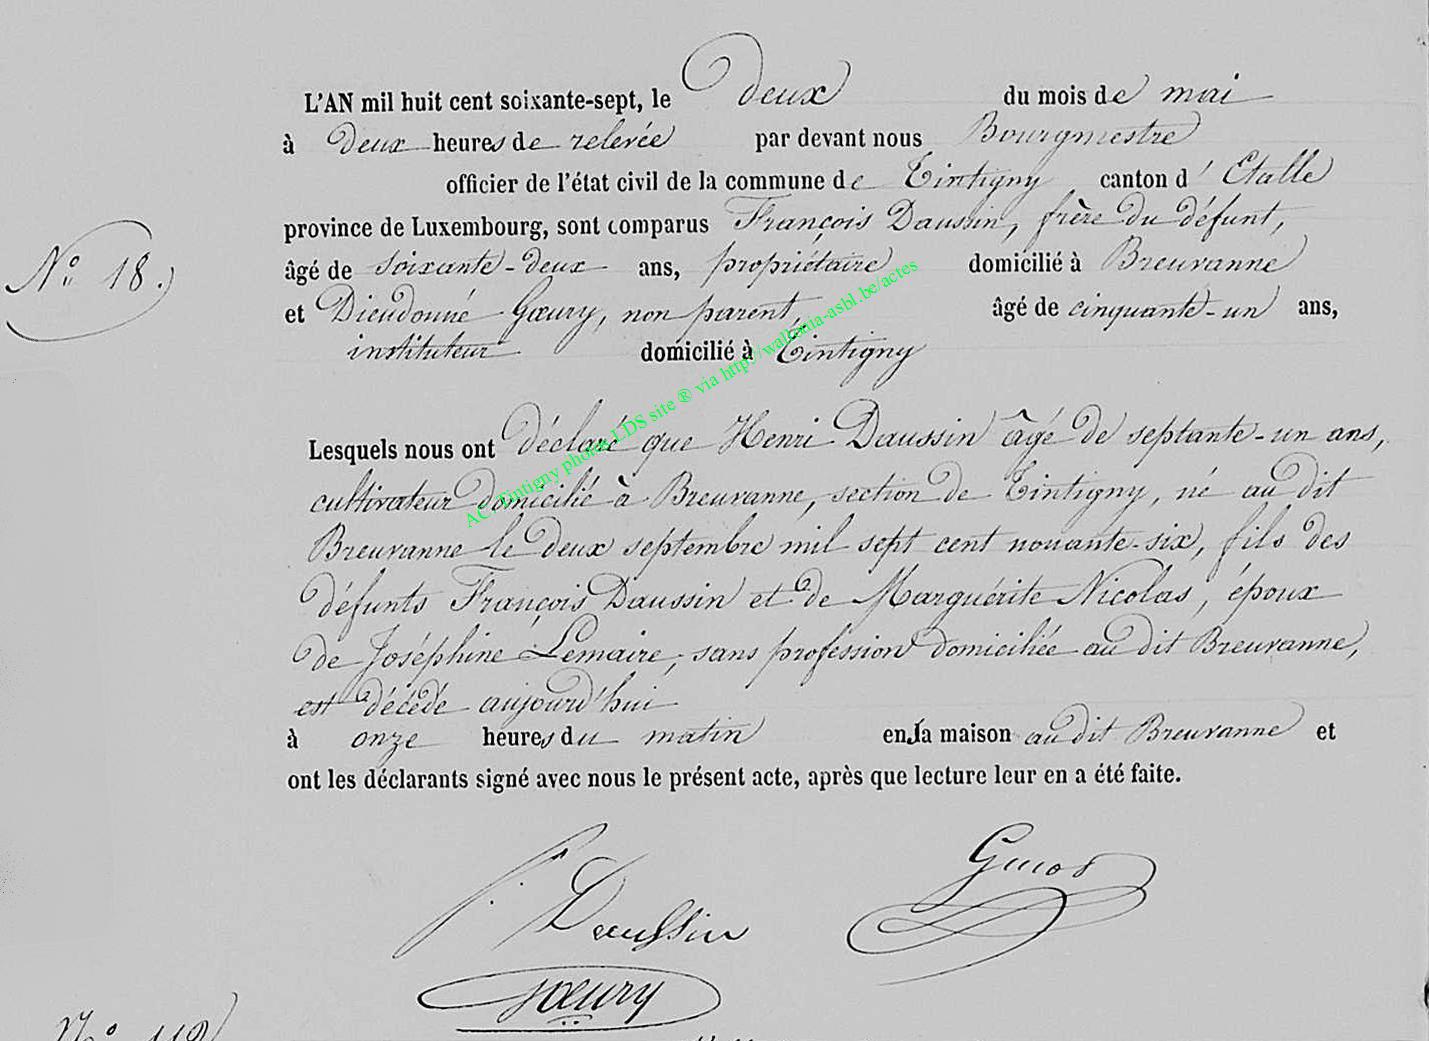 L'AN mil huit cent soixante-sept, le deux du mois de mai
à deux heures de relevée par devant nous Bourgmestre
officier de l'état civil de la commune de Tintigny canton d' Etalle
province de Luxembourg, sont comparus François Daussin, frère du défunt,
No 18.
âgé de soixante-deux ans, propriétaire domicilié à Breuvanne
et Dieudonné Gœury, non parent, âgé de cinquante-un ans,
instituteur domicilié à Tintigny
AC Tintigny photos LDS site ® via http://wallonia-asbl.be/actes
Lesquels nous ont déclaré que Henri Daussin âgé de septante-un ans,
cultivateur domicilié à Breuvanne, section de Tintigny, né au dit
Breuvanne le deux septembre mil sept cent nonante-six, fils des
défunts François Daussin et de Marguérite Nicolas, époux
de Joséphine Lemaire, sans profession domiciliée au dit Breuvanne,
est décédé aujourd'hui
à onze heures du matin en la maison au dit Breuvanne et
ont les déclarants signé avec nous le présent acte, après que lecture leur en a été faite.
f. Daussin
Gœury